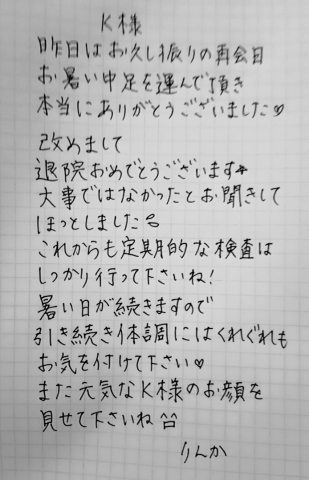 K様
昨日はお久し振りの再会日
お暑い中足を運んで頂き
本当にありがとうございました♡
改めまして
退院おめでとうございます★
大事ではなかったとお聞きして
ほっとしました
これからも定期的な検査は
しっかり行って下さいね!
暑い日が続きますので
引き続き体調にはくれぐれも
お気を付けて下さい♡
また元気なK様のお顔を
見せて下さいね^^
りんか